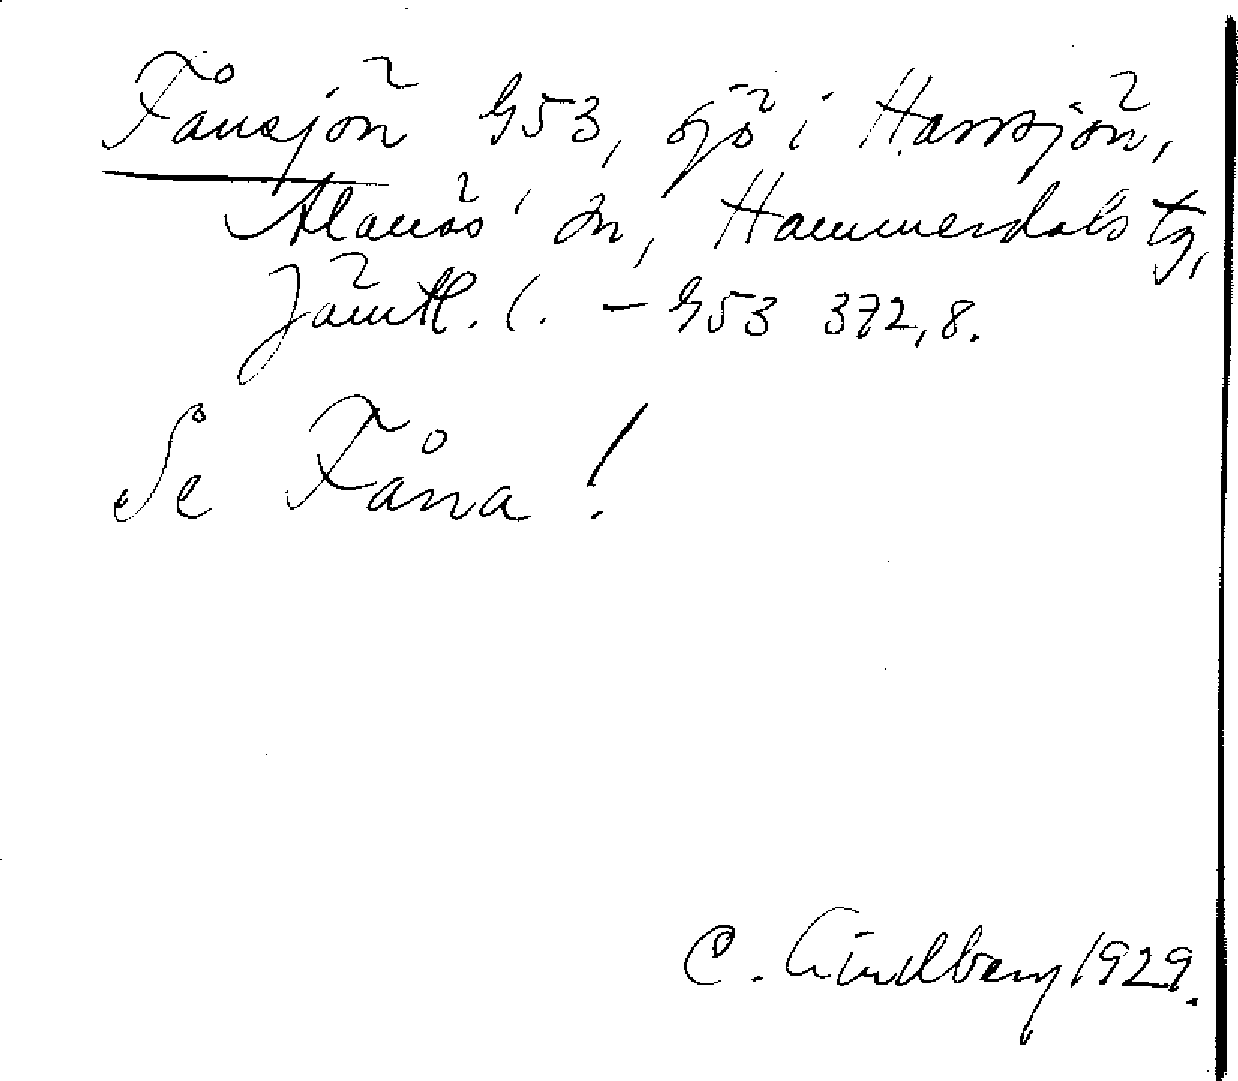 Fånsjön G53, sjö i Hansjön,
Alanäs sn, Hammerdals tg,
Jämtl. l. – G53 372,8.
Se Fåna!
C. Lindberg 1929.